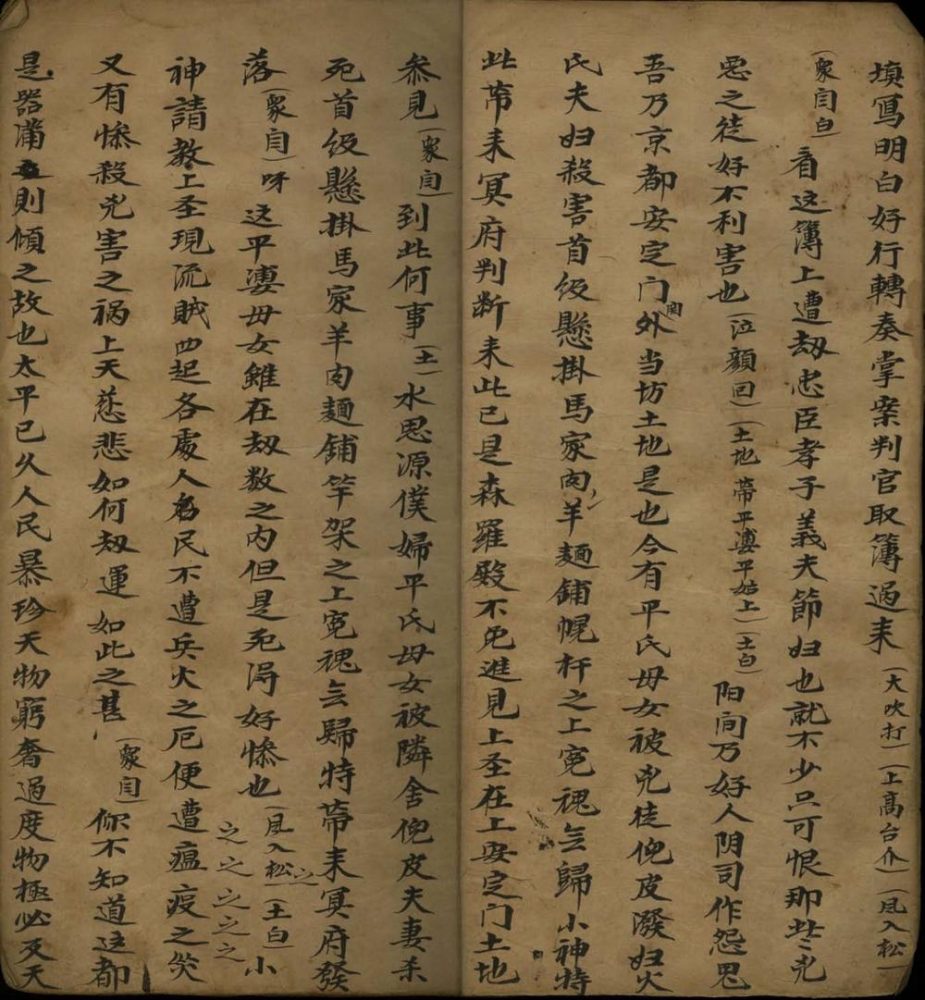 填寫明白好行轉奏掌案判官取簿過来(大吹打)(上高台介)(風入松)
(衆閆白)看这簿上遭刼忠臣孝子義夫節妇也就不少只可恨那些兇
惡之徒好不利害也(泣顏回)(土地帶平婆平姑上)(土白)阳间乃好人阴司作怨鬼
吾乃京都安定门外関当坊土地是也今有平氏毋女被兇徒倪皮潑妇火
氏夫妇殺害首级懸掛馬家肉羊麵鋪幌杆之上寃魂無歸小神特
此帶来冥府判断来此已是森羅殿不免進見上圣在上安定门土地
叅見(衆閆)到此何事(土)水思源僕婦平氏毋女被隣舍倪皮夫妻杀
死首级懸掛馬家羊肉麵鋪竿架之上寃魂無歸特帶来冥府發
落(衆閆)呀这平婆毋女雖在刼数之内但是死淂好惨也(風入松)(土白)小
之之之之之之
神請教上圣現流賊四起各處人民不遭兵火之厄便遭瘟疫之灾
又有惨殺兇害之祸上天慈悲如何刼運如此之甚(衆閆)你不知道这都
是器滿則傾之故也太平已久人民暴殄天物窮奢過度物極必反天